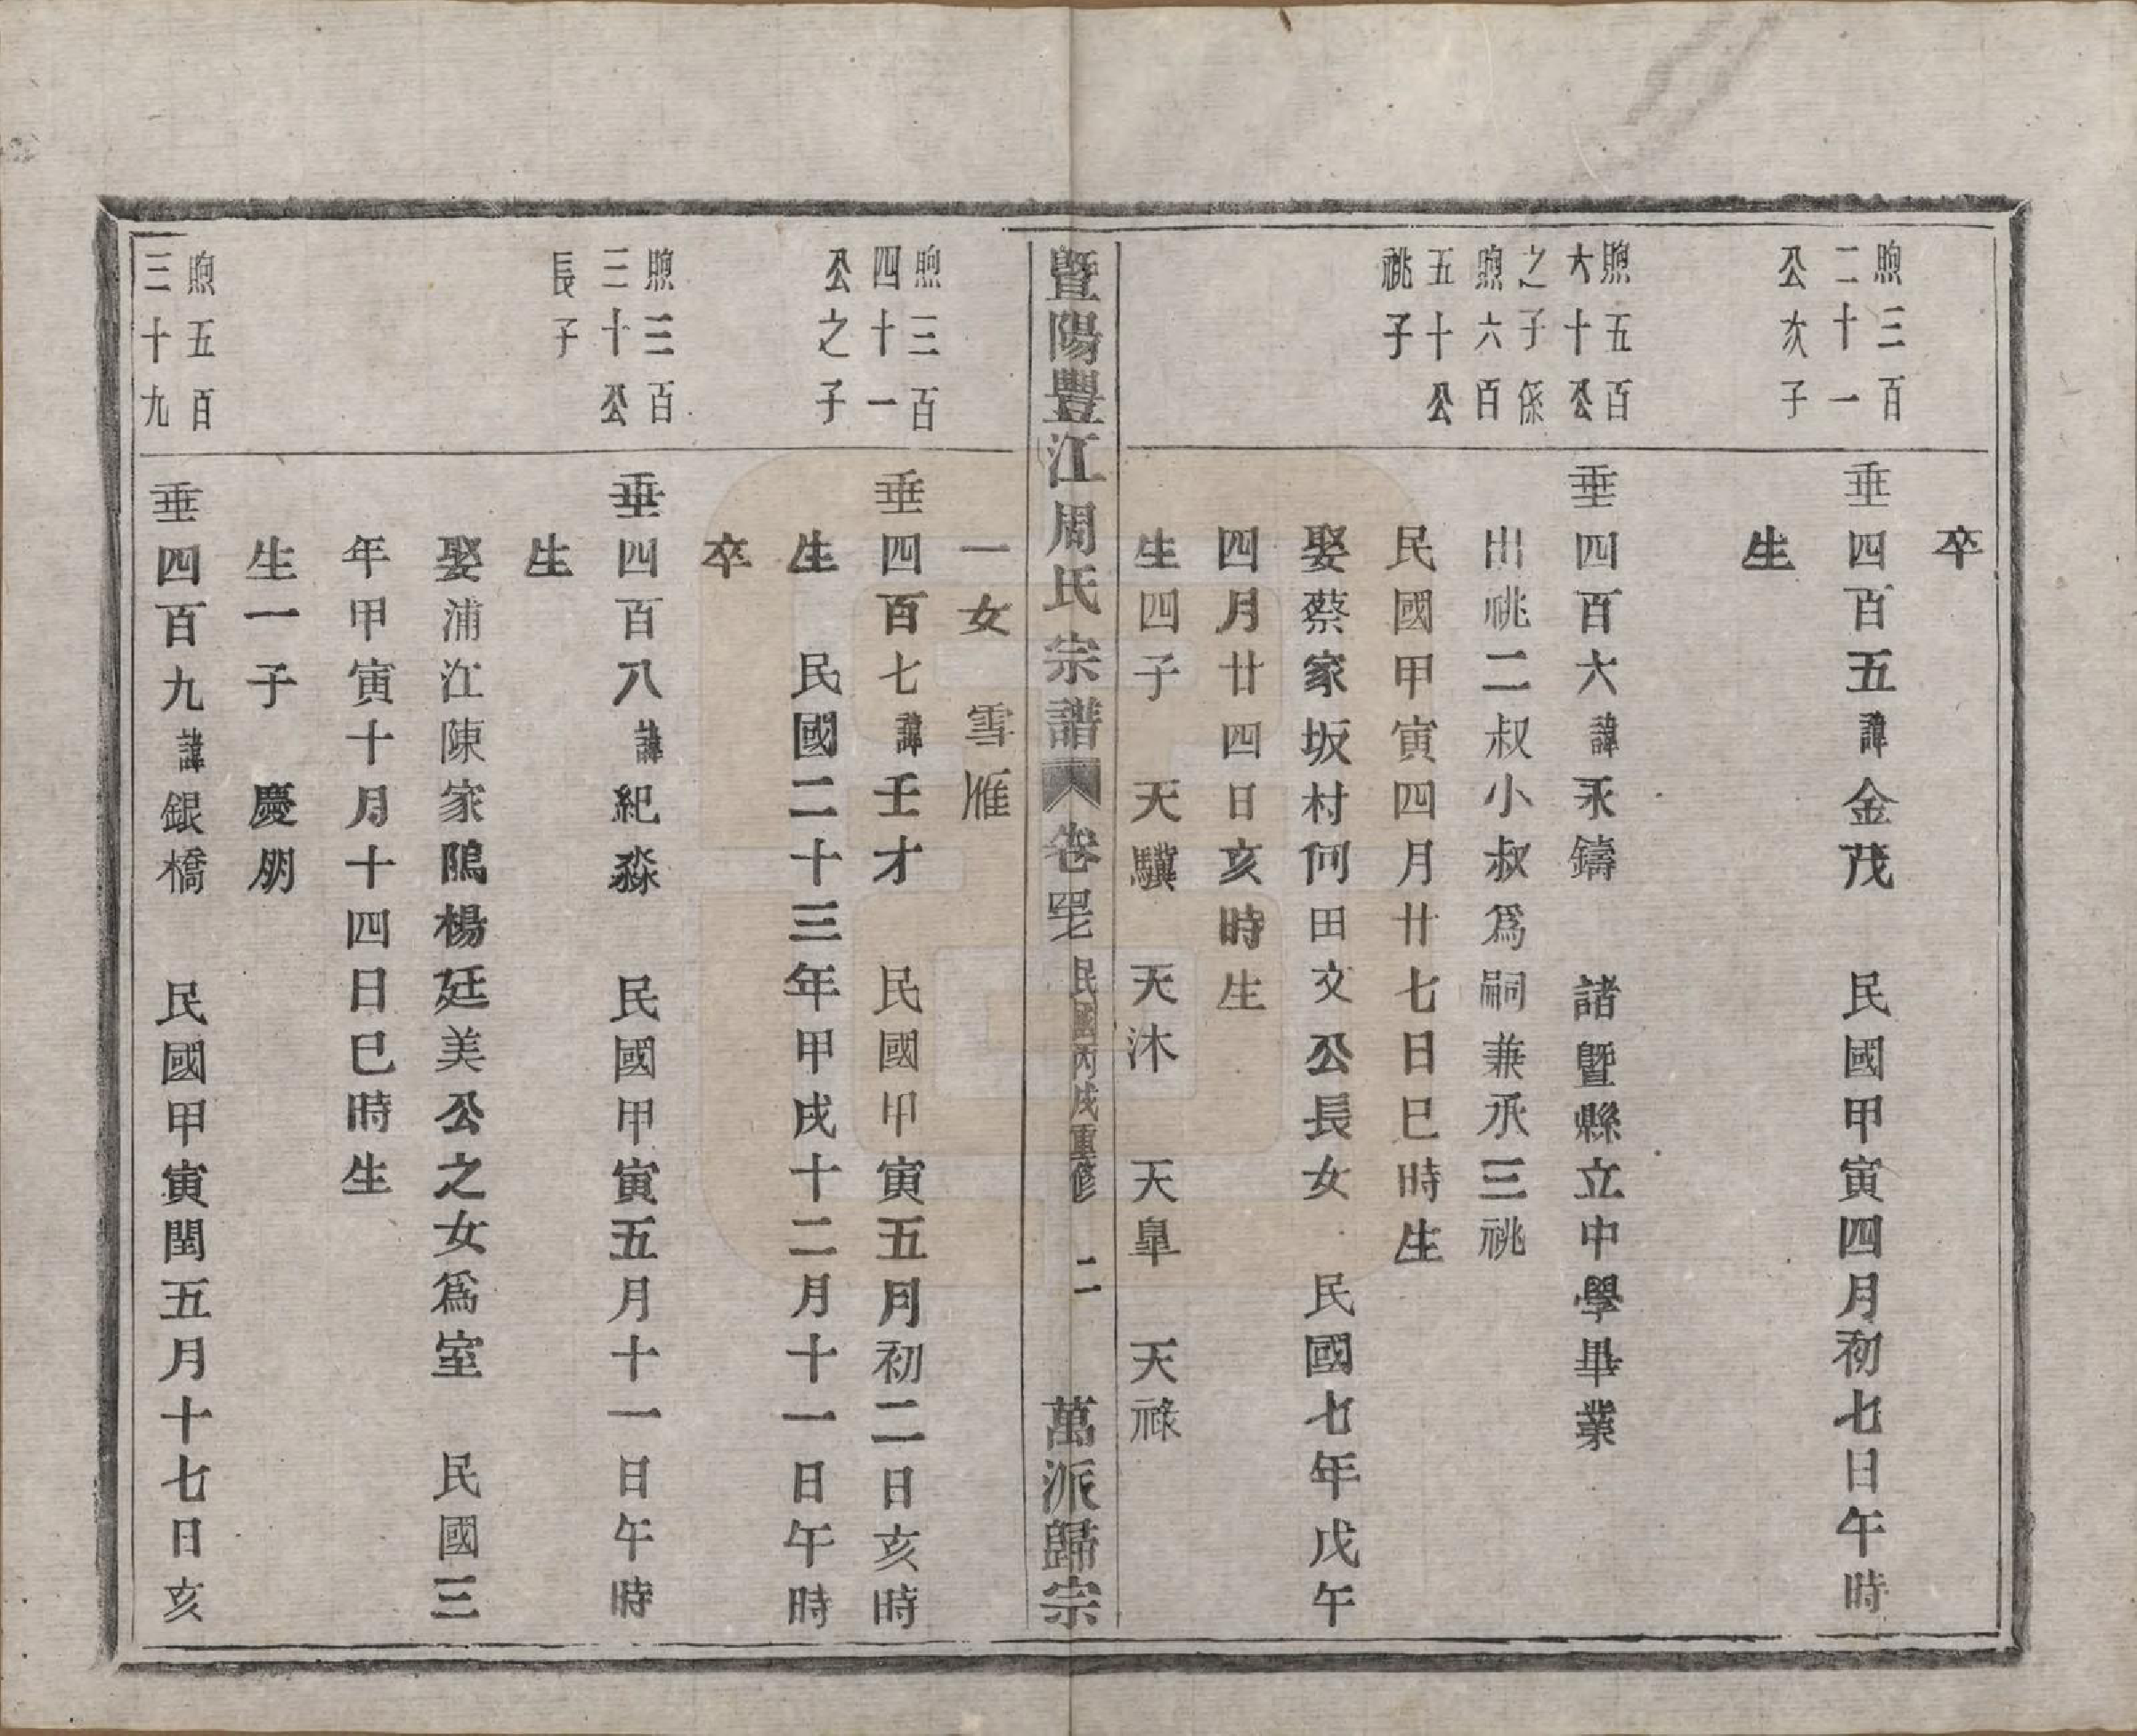 卒
煦三百
二十一
公次子
垂四百五諱金茂　民國甲寅四月初七日午時
生
煦五百
六十公
之子係
煦六百
五十公
祧子
垂四百六諱永鑄　諸暨縣立中學畢業
出祧二叔小叔爲嗣兼承三祧
民國甲寅四月廿七日巳時生
娶蔡家坂村何田文公長女　民國七年戊午
四月廿四日亥時生
生四子　天驥　天沐　天皐　天祿
暨陽豐江周氏宗譜　卷四七　民國丙戌重修　二　萬派歸宗
一女　雪雁
煦三百
四十一
公之子
垂四百七諱壬才　民國甲寅五月初二日亥時
生　民國二十三年甲戌十二月十一日午時
卒
煦三百
三十公
長子
垂四百八諱紀淼　民國甲寅五月十一日午時
生
娶浦江陳家隖楊廷美公之女爲室　民國三
年甲寅十月十四日巳時生
生一子　慶朋
煦五百
三十九
垂四百九諱銀橋　民國甲寅閏五月十七日亥